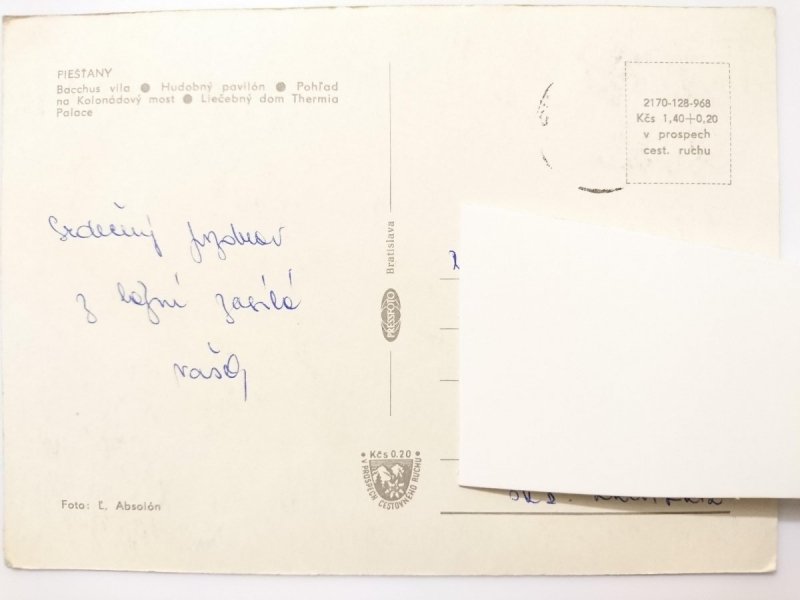 PIEŠŤANY
Bacchus vila ● Hudobný pavilón ● Pohľad
na Kolonádový most ● Liečebný dom Thermia
Palace
2170-128-968
Kčs 1,40+0,20
v prospech
cest. ruchu
Srdečný pozdrav
z lázní zasílá
Bratislava
PRESSFOTO
Kčs 0.20
V PROSPECH CESTOVNÉHO RUCHU
Foto: Ľ. Absolón